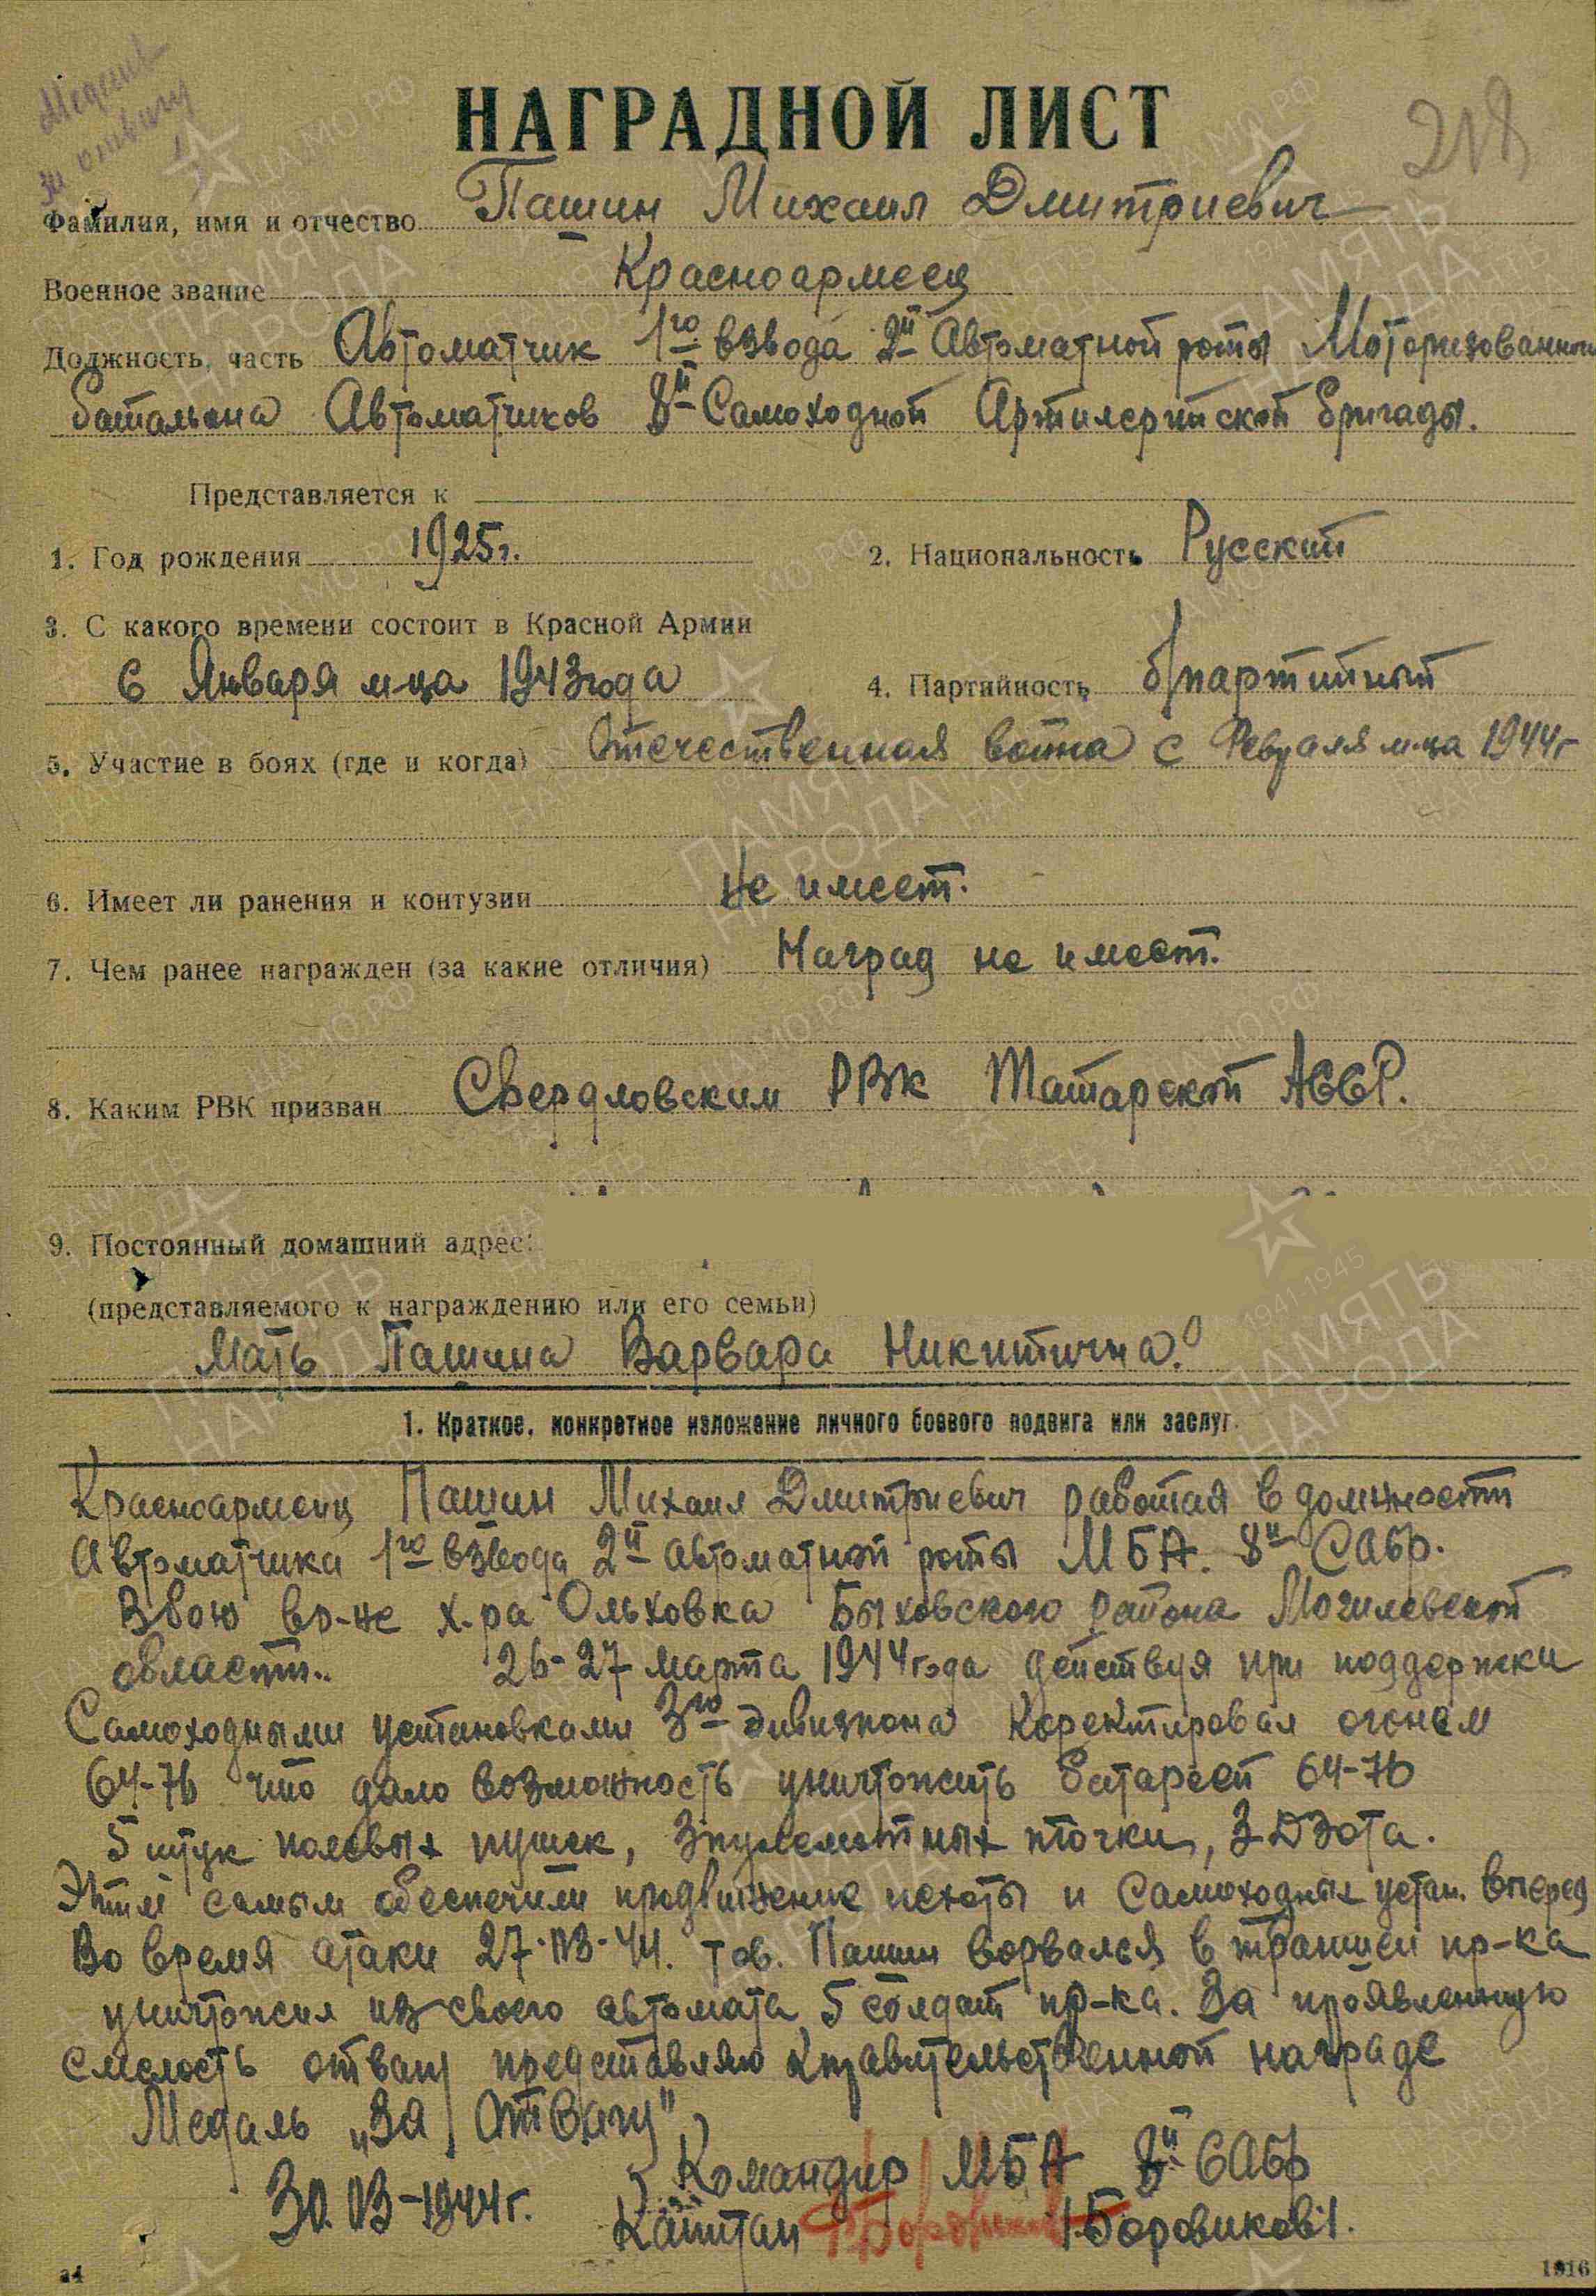 Медаль
за отвагу
218
НАГРАДНОЙ ЛИСТ
Фамилия, имя и отчество Пашин Михаил Дмитриевич
Военное звание Красноармеец
Должность, часть Автоматчик 1го взвода 2й Автоматной роты Моторизованного
батальона Автоматчиков 8й Самоходной Артилерийской бригады.
Представляется к
1. Год рождения 1925г.
2. Национальность Русский
3. С какого времени состоит в Красной Армии
С Января м-ца 1943года
4. Партийность б/партийный
5. Участие в боях (где и когда) Отечественная война с Февраля м-ца 1944г
6. Имеет ли ранения и контузии Не имеет.
7. Чем ранее награжден (за какие отличия) Наград не имеет.
8. Каким РВК призван Свердловским РВК Татарской АССР.
9. Постоянный домашний адрес:
(представляемого к награждению или его семьи)
Мать Пашина Варвара Никитична.
1. Краткое, конкретное изложение личного боевого подвига или заслуг.
Красноармеец Пашин Михаил Дмитриевич работая в должности
Автоматчика 1го взвода 2й автоматной роты МБА. 8й САбр.
В бою в р-не х-ра Ольховка Быховского района Могилевской
области.. 26-27 марта 1944года действуя при поддержки
Самоходными установками 3го дивизиона Коректировал огонем
СУ-76 что дало возможность уничтожить батареей СУ-76
5 штук полевых пушек, 3 пулеметных точки, 3 ДЗОТа.
Этим самым обеспечили продвижение пехоты и Самоходных устан. вперед
Во время атаки 27.03.44. тов. Пашин ворвался в траншеи пр-ка
уничтожил из своего автомата 5 солдат пр-ка. За проявленную
смелость отвагу представляю к правительственной награде
Медаль "За Отвагу"
Командир МБА 8й САбр
30.03-1944г.
Капитан /Боровиков/.
а4
1916